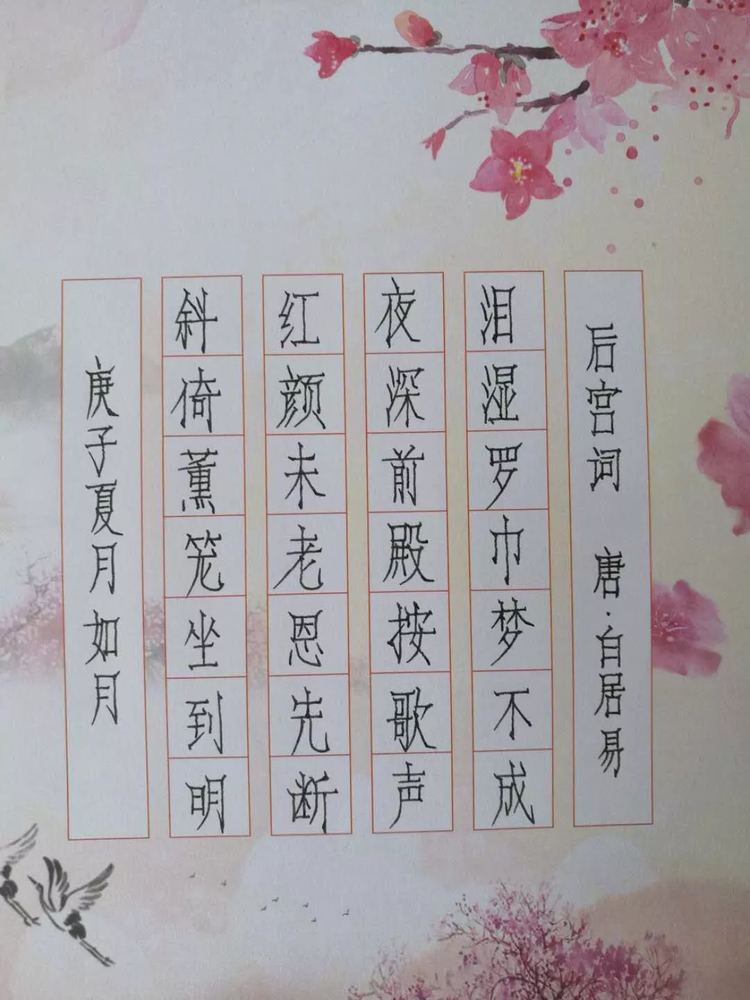 后宫词 唐·白居易
泪湿罗巾梦不成
夜深前殿按歌声
红颜未老恩先断
斜倚薰笼坐到明
庚子夏月如月